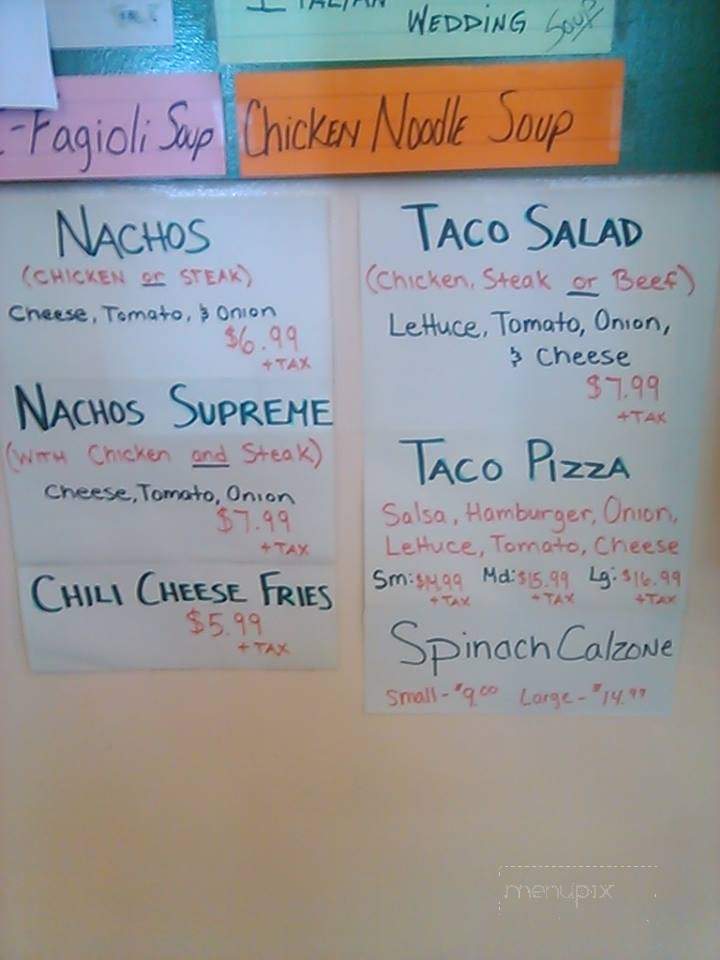 ITALIAN
WEDDING Soup
-Fagioli Soup
Chicken Noodle Soup
NACHOS
(CHICKEN or STEAK)
Cheese, Tomato, & Onion
$6.99
+TAX
NACHOS SUPREME
(WITH Chicken and Steak)
Cheese, Tomato, Onion
$7.99
+TAX
CHILI CHEESE FRIES
$5.99
+TAX
TACO SALAD
(Chicken, Steak or Beef)
Lettuce, Tomato, Onion,
& Cheese
$7.99
+TAX
TACO PIZZA
Salsa, Hamburger, Onion,
Lettuce, Tomato, Cheese
Sm: $14.99 Md: $15.99 Lg: $16.99
+TAX +TAX +TAX
Spinach Calzone
Small - $9.00 Large - $14.99
menupix